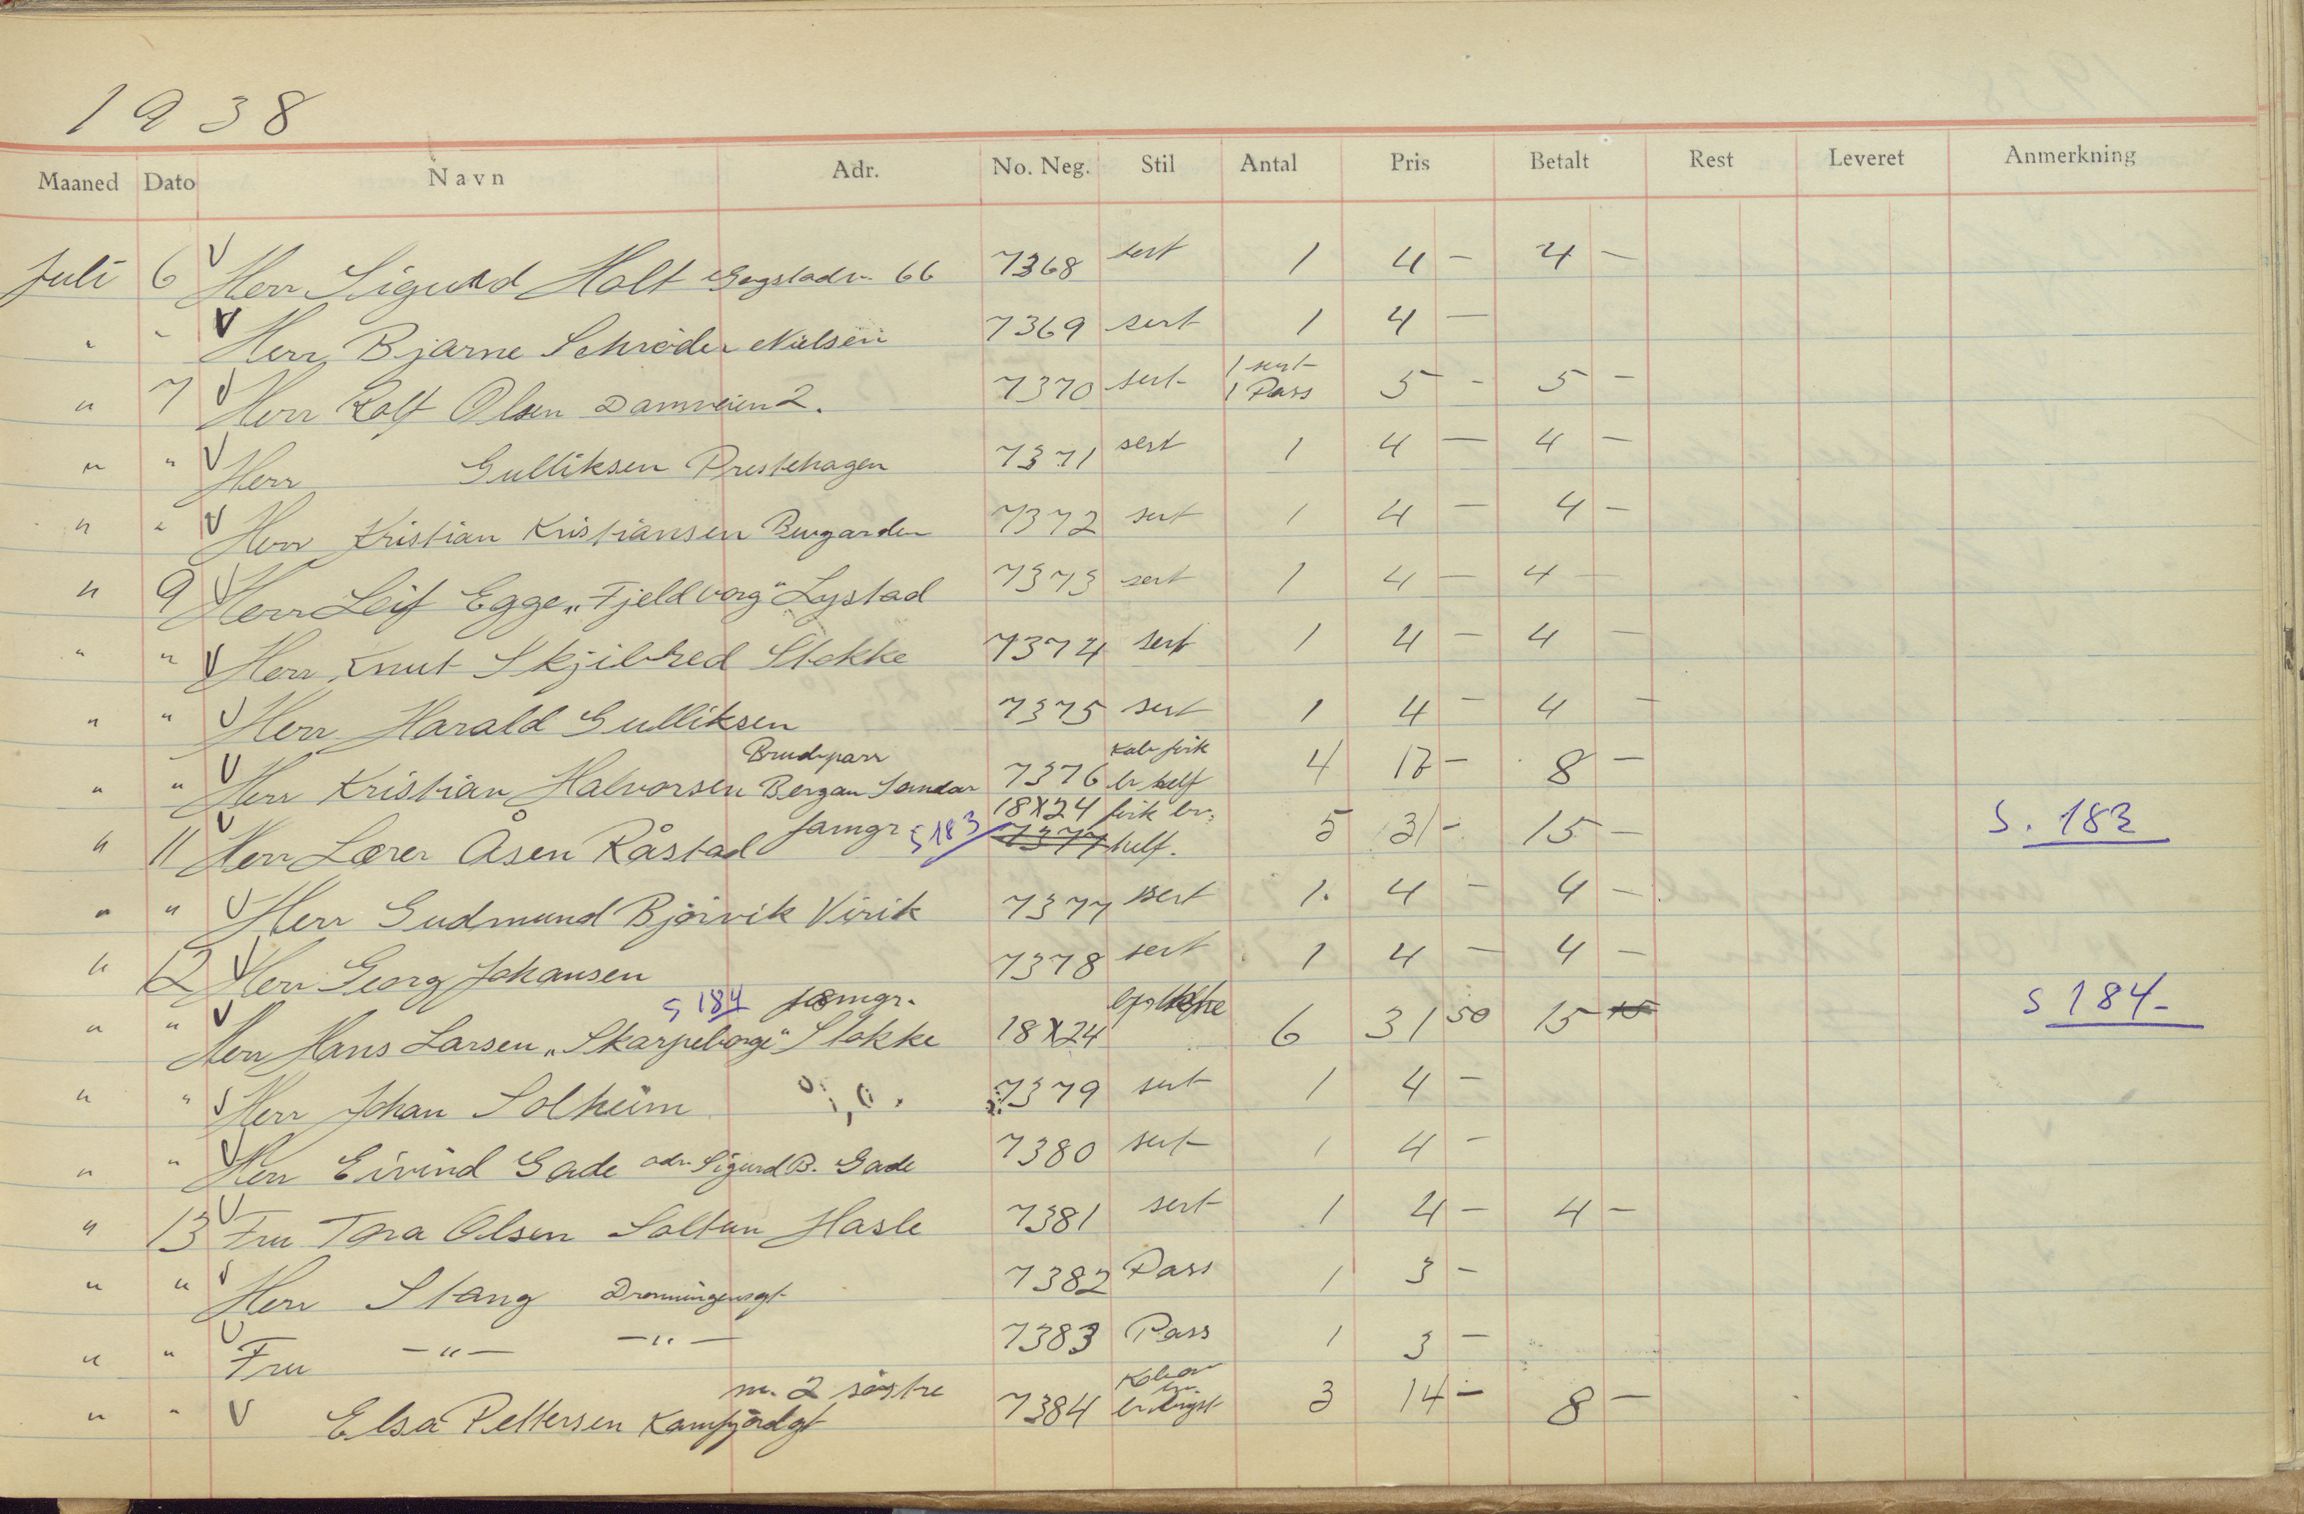 1938
Maaned Dato Navn Adr. No. Neg. Stil Antal Pris Betalt Rest Leveret Anmerkning
Juli 6 V Herr Sigurd Holt Gogstadv. 66 7368 sert 1 4 – 4 –
" " V Herr Bjarne Schrøder Nielsen 7369 sert 1 4 –
" 7 V Herr Rolf Olsen Damveien 2. 7370 sert 1 sert 1 Pass 5 – 5 –
" " V Herr Gulliksen Prestehagen 7371 sert 1 4 – 4 –
" " V Herr Kristian Kristiansen 7372 sert 1 4 – 4 –
" 9 V Herr Leif Egge „Fjeldborg" Lystad 7373 sert 1 4 – 4 –
" " V Herr Knut Skjilbred Stokke 7374 sert 1 4 – 4 –
" " V Herr Harald Gulliksen 7375 sert 1 4 – 4 –
" " V Herr Kristian Halvorsen Brudepar Bergan Sandar 7376 Kab firk br helf 4 17 – 8 –
" 11 V Herr Lærer Åsen Råstad famgr. S 183 18X24 7377 firk br. helf. 5 31 – 15 – S. 183
" " V Herr Gudmund Bjørvik Virik 7377 sert 1. 4 – 4 –
" 12 V Herr Georg Johansen 7378 sert 1 4 – 4 –
" " V Herr Hans Larsen „Skarpeborg" Stokke S 184 famgr. 18X24 6 31 50 15 15 S 184 –
" " V Herr Johan Solheim 7379 sert 1 4 –
" " V Herr Eivind Gade adr. Sigurd B. Gade 7380 sert 1 4 –
" 13 V Fru Tora Olsen Soltun Hasle 7381 sert 1 4 – 4 –
" " V Herr Stang Dronningensgt 7382 Pass 1 3 –
" " V Fru – " – – " – 7383 Pass 1 3 –
" " V Elsa Pettersen m. 2 søstre Kamfjordgt 7384 3 14 – 8 –